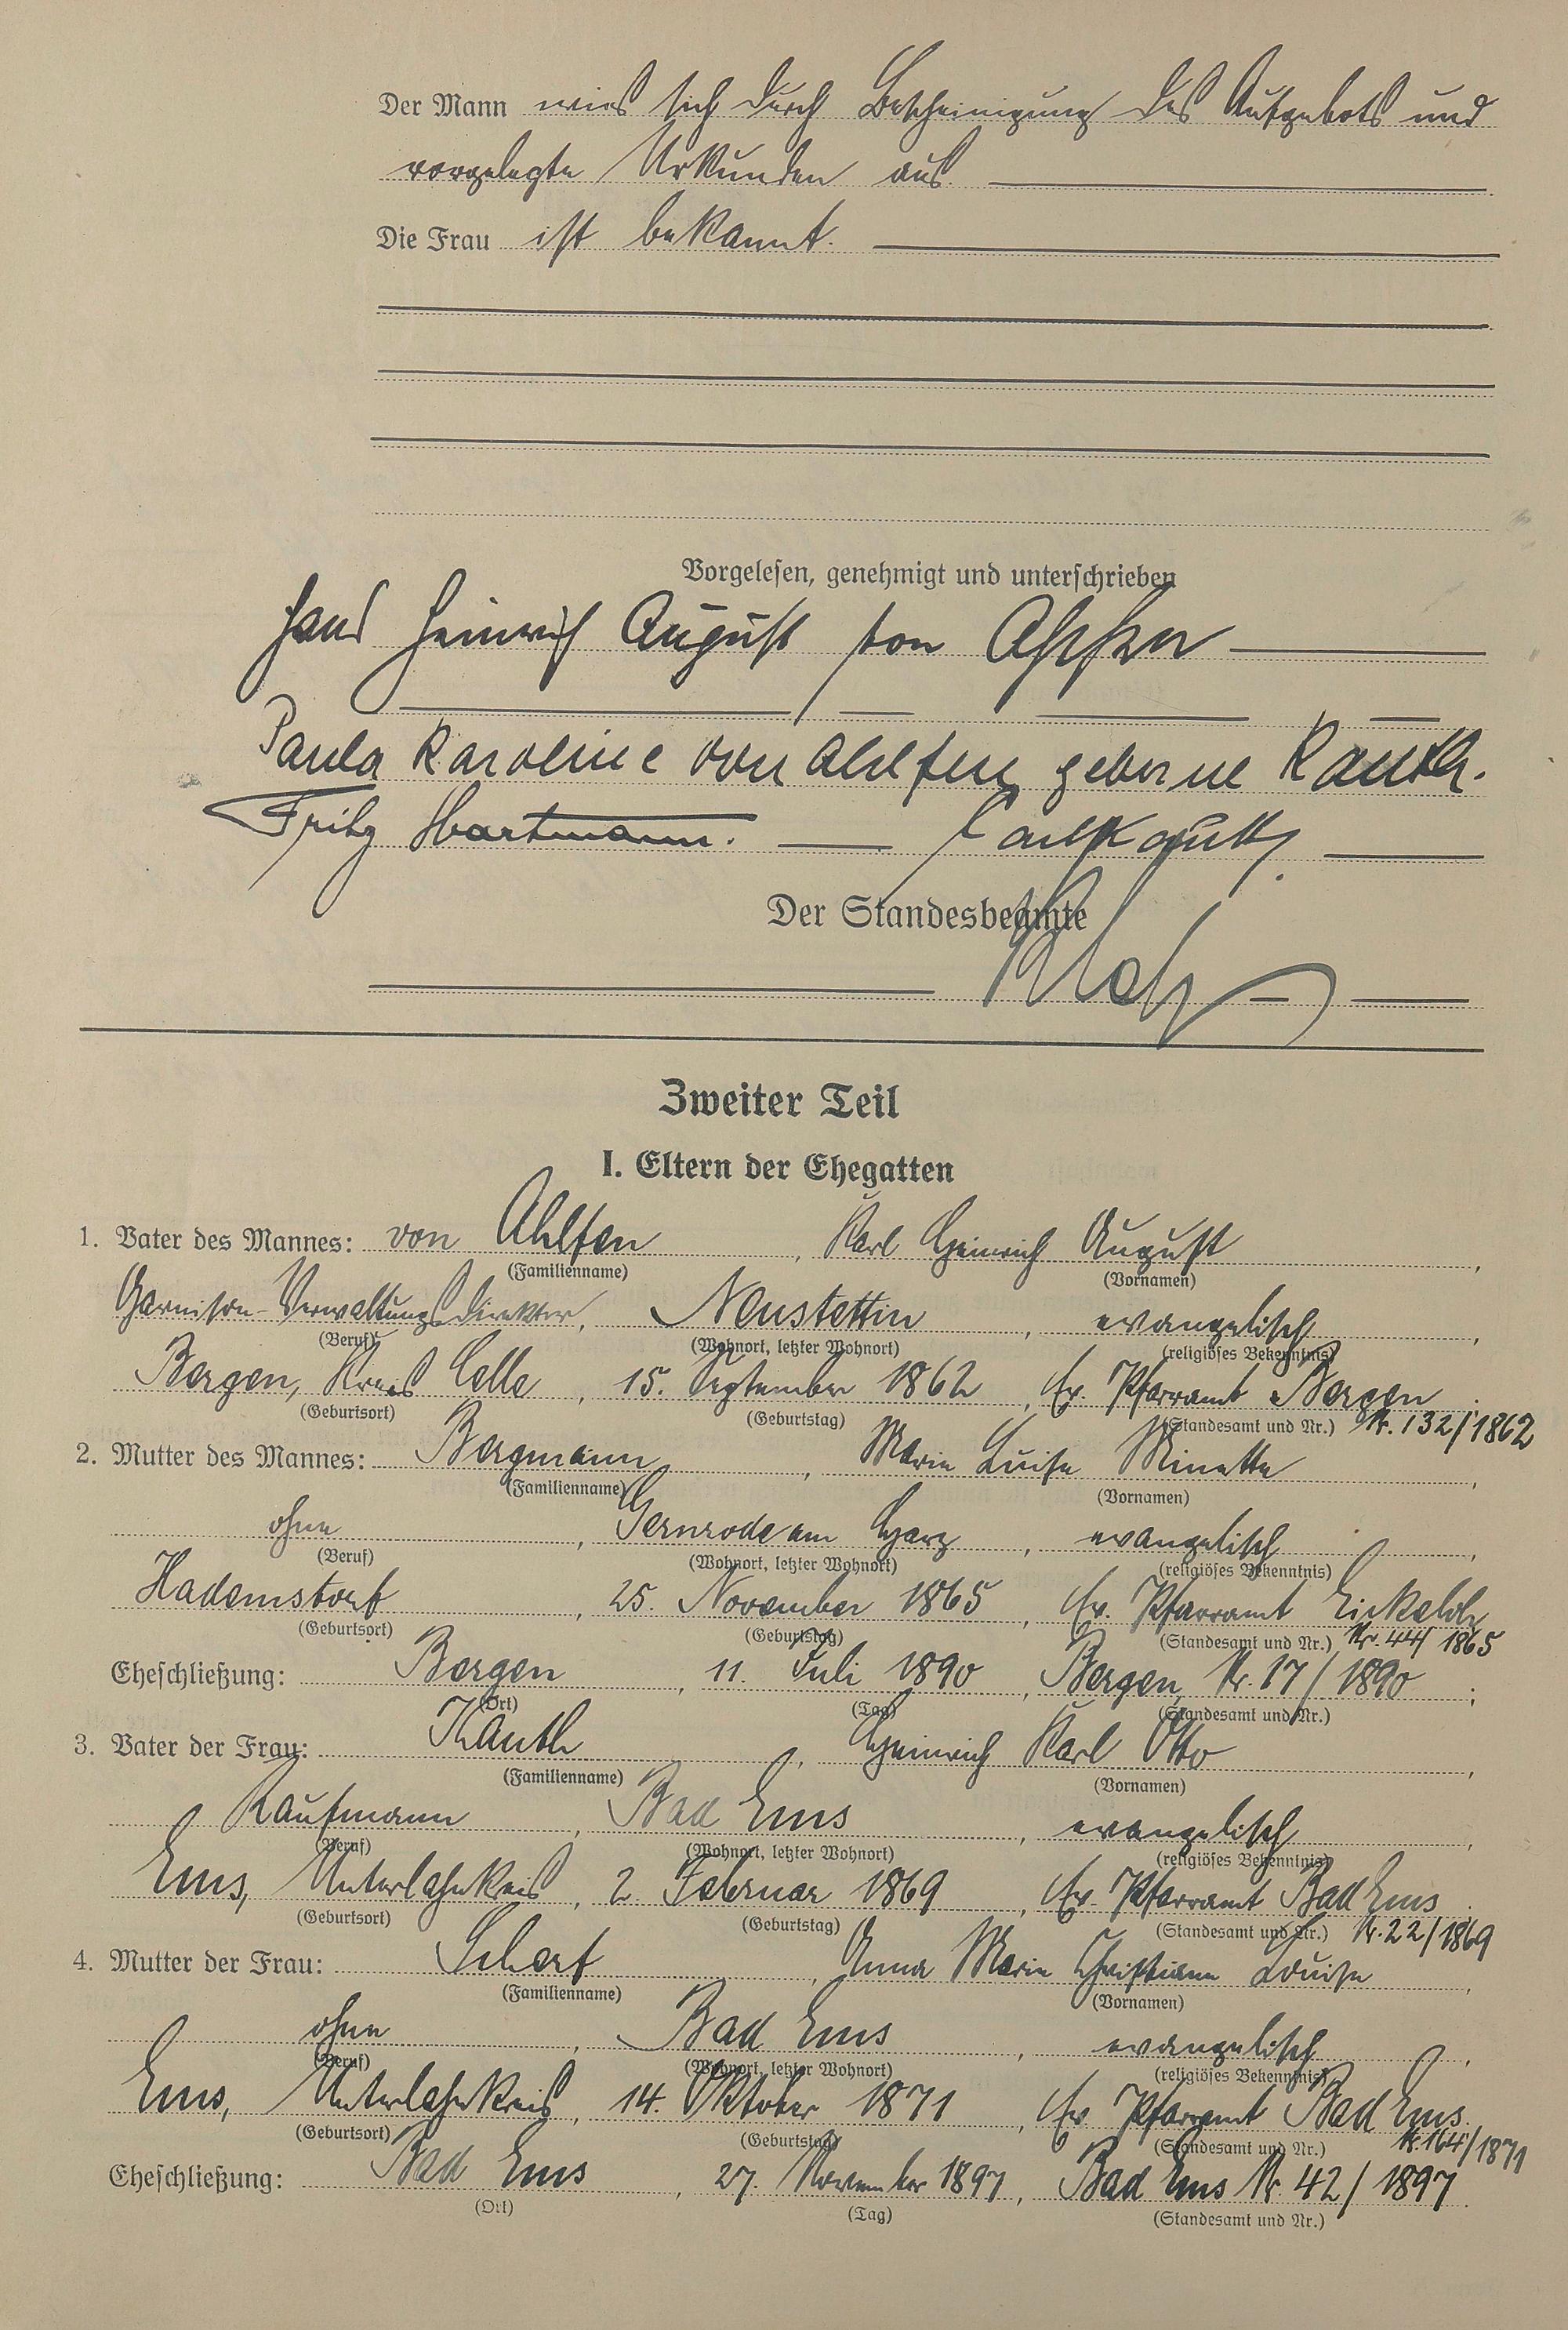 Der Mann wies sich durch Bescheinigung des Aufgebots und
vorgelegte Urkunden aus.
Die Frau ist bekannt.
Vorgelesen, genehmigt und unterschrieben
Hans Heinrich August von Ahlften
Paula Karoline von Ahlften geborne Kauth.
Fritz Hartmann. Kauth
Der Standesbeamte
Zweiter Teil
I. Eltern der Ehegatten
1. Vater des Mannes: von Ahlften, Karl Heinrich August,
(Familienname) (Vornamen)
Garnison-Verwaltungsdirektor, Neustettin, evangelisch,
(Beruf) (Wohnort, letzter Wohnort) (religiöses Bekenntnis)
Bergen, Kreis Celle, 15. September 1862, Ev. Pfarramt Bergen
(Geburtsort) (Geburtstag) (Standesamt und Nr.) Nr. 132/1862
2. Mutter des Mannes: Bergmann, Marie Luise Minette,
(Familienname) (Vornamen)
ohne, Gernrode am Harz, evangelisch,
(Beruf) (Wohnort, letzter Wohnort) (religiöses Bekenntnis)
Hademstorf, 25. November 1865, Ev. Pfarramt Eickeloh
(Geburtsort) (Geburtstag) (Standesamt und Nr.) Nr. 44/1865
Eheschließung: Bergen, 11. Juli 1890, Bergen, Nr. 17/1890;
(Ort) (Tag) (Standesamt und Nr.)
3. Vater der Frau: Kauth, Heinrich Karl Otto,
(Familienname) (Vornamen)
Kaufmann, Bad Ems, evangelisch,
(Beruf) (Wohnort, letzter Wohnort) (religiöses Bekenntnis)
Ems, Unterlahnkreis, 2. Februar 1869, Ev. Pfarramt Bad Ems
(Geburtsort) (Geburtstag) (Standesamt und Nr.) Nr. 22/1869
4. Mutter der Frau: Scharf, Anna Marie Christiane Louise,
(Familienname) (Vornamen)
ohne, Bad Ems, evangelisch,
(Beruf) (Wohnort, letzter Wohnort) (religiöses Bekenntnis)
Ems, Unterlahnkreis, 14. Oktober 1871, Ev. Pfarramt Bad Ems.
(Geburtsort) (Geburtstag) (Standesamt und Nr.) Nr. 164/1871
Eheschließung: Bad Ems, 27. November 1897, Bad Ems Nr. 42/1897.
(Ort) (Tag) (Standesamt und Nr.)